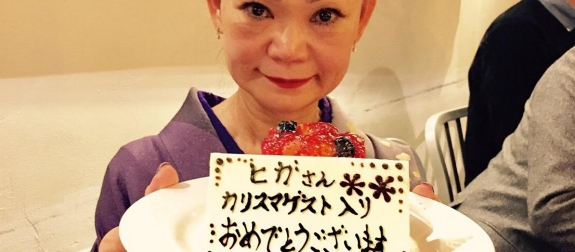 ヒガさん
カリスマゲスト入り
おめでとうございます